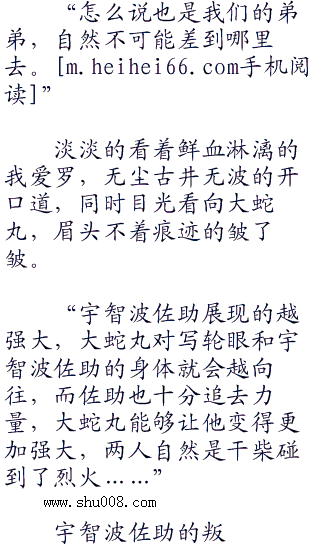 “怎么说也是我们的弟
弟，自然不可能差到哪里
去。[m.heihei66.com手机阅
读]”
淡淡的看着鲜血淋漓的
我爱罗，无尘古井无波的开
口道，同时目光看向大蛇
丸，眉头不着痕迹的皱了
皱。
“宇智波佐助展现的越
强大，大蛇丸对写轮眼和宇
智波佐助的身体就会越向
往，而佐助也十分追去力
量，大蛇丸能够让他变得更
加强大，两人自然是干柴碰
到了烈火……”
www.shu008.com
宇智波佐助的叛